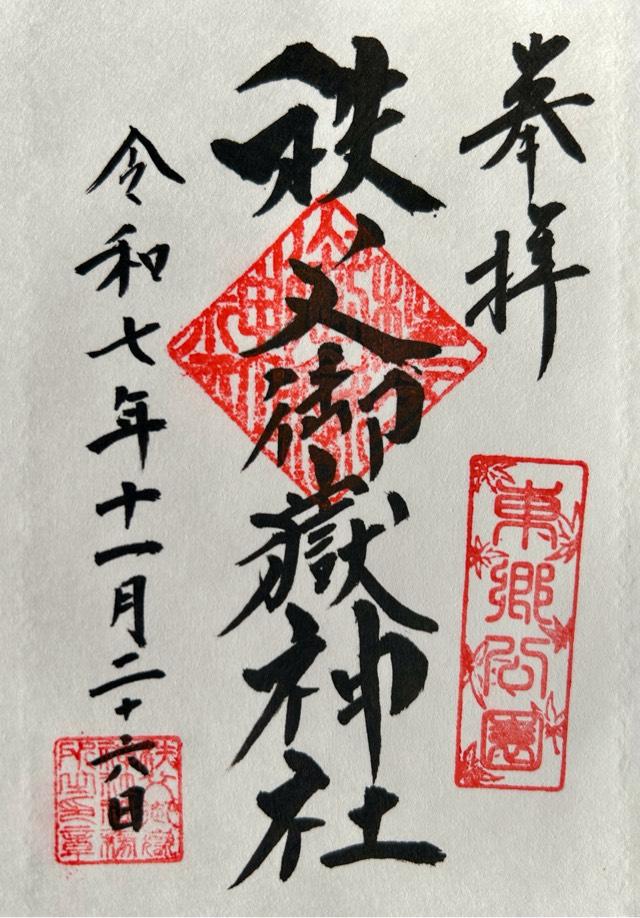 奉拝
東郷公園
秩父御嶽神社
令和七年十一月二十六日